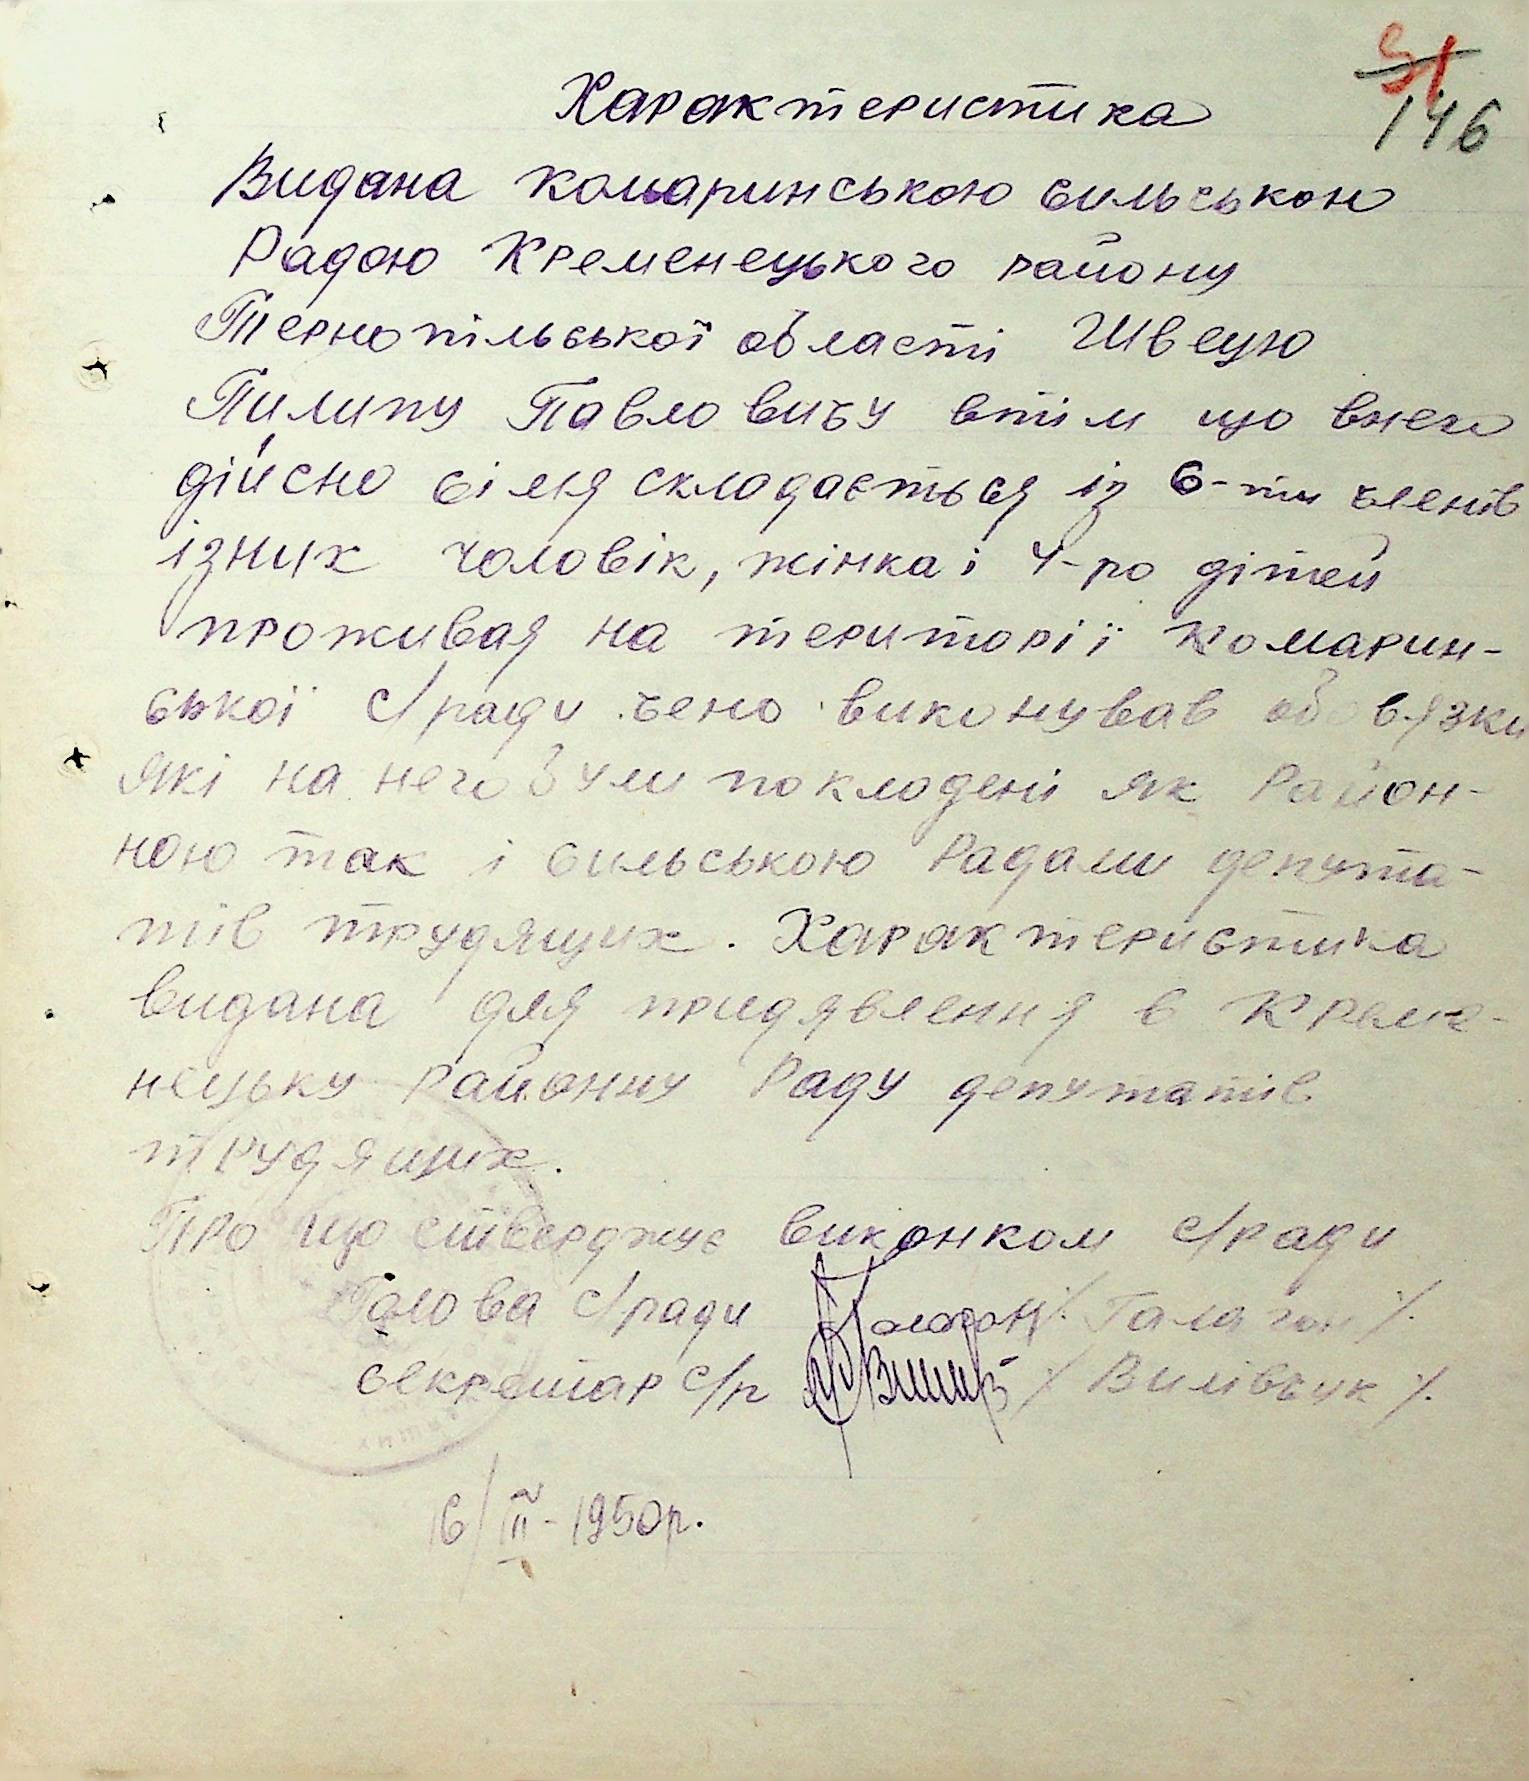 91
146
Характеристика
Видана комаринською сильською
Радою Кременецького району
Тернопільської області Швецю
Пилипу Павловичу втім що внего
дійсно сімя складається із 6-ти членів
ізних чоловік, жінка і 4-ро дітей
проживая на територіі Комарин-
ської с/ради чено виконував обовязки
які на него були покладені як Район-
ною так і сильською Радами депута-
тів трудящих. Характеристика
видана для придявлення в Креме-
нецьку Районну Раду депутатів
трудящих.
Про що стверджує виконком с/ради
Голова с/ради /. Галаган /.
секретар с/р /. Вилівчук /.
16/III-1950р.